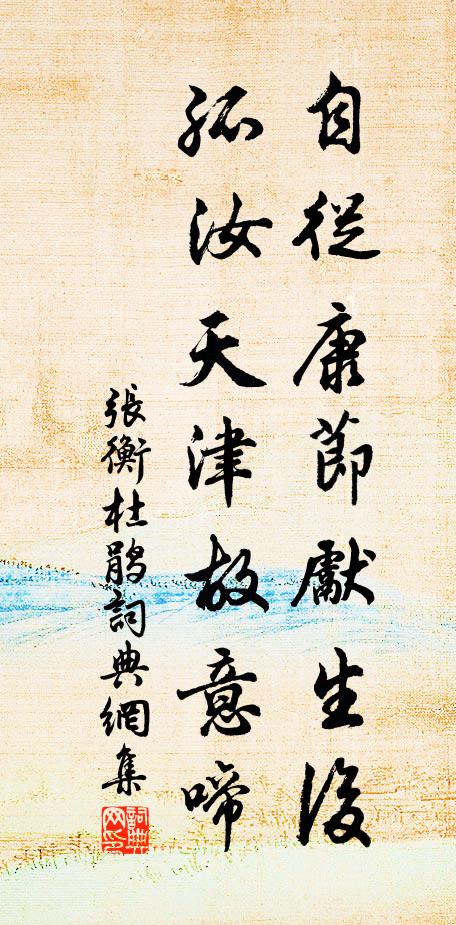 自從康節獻生後
孤汝天津故意啼
張衡杜鵑詞典網集
詞典网印